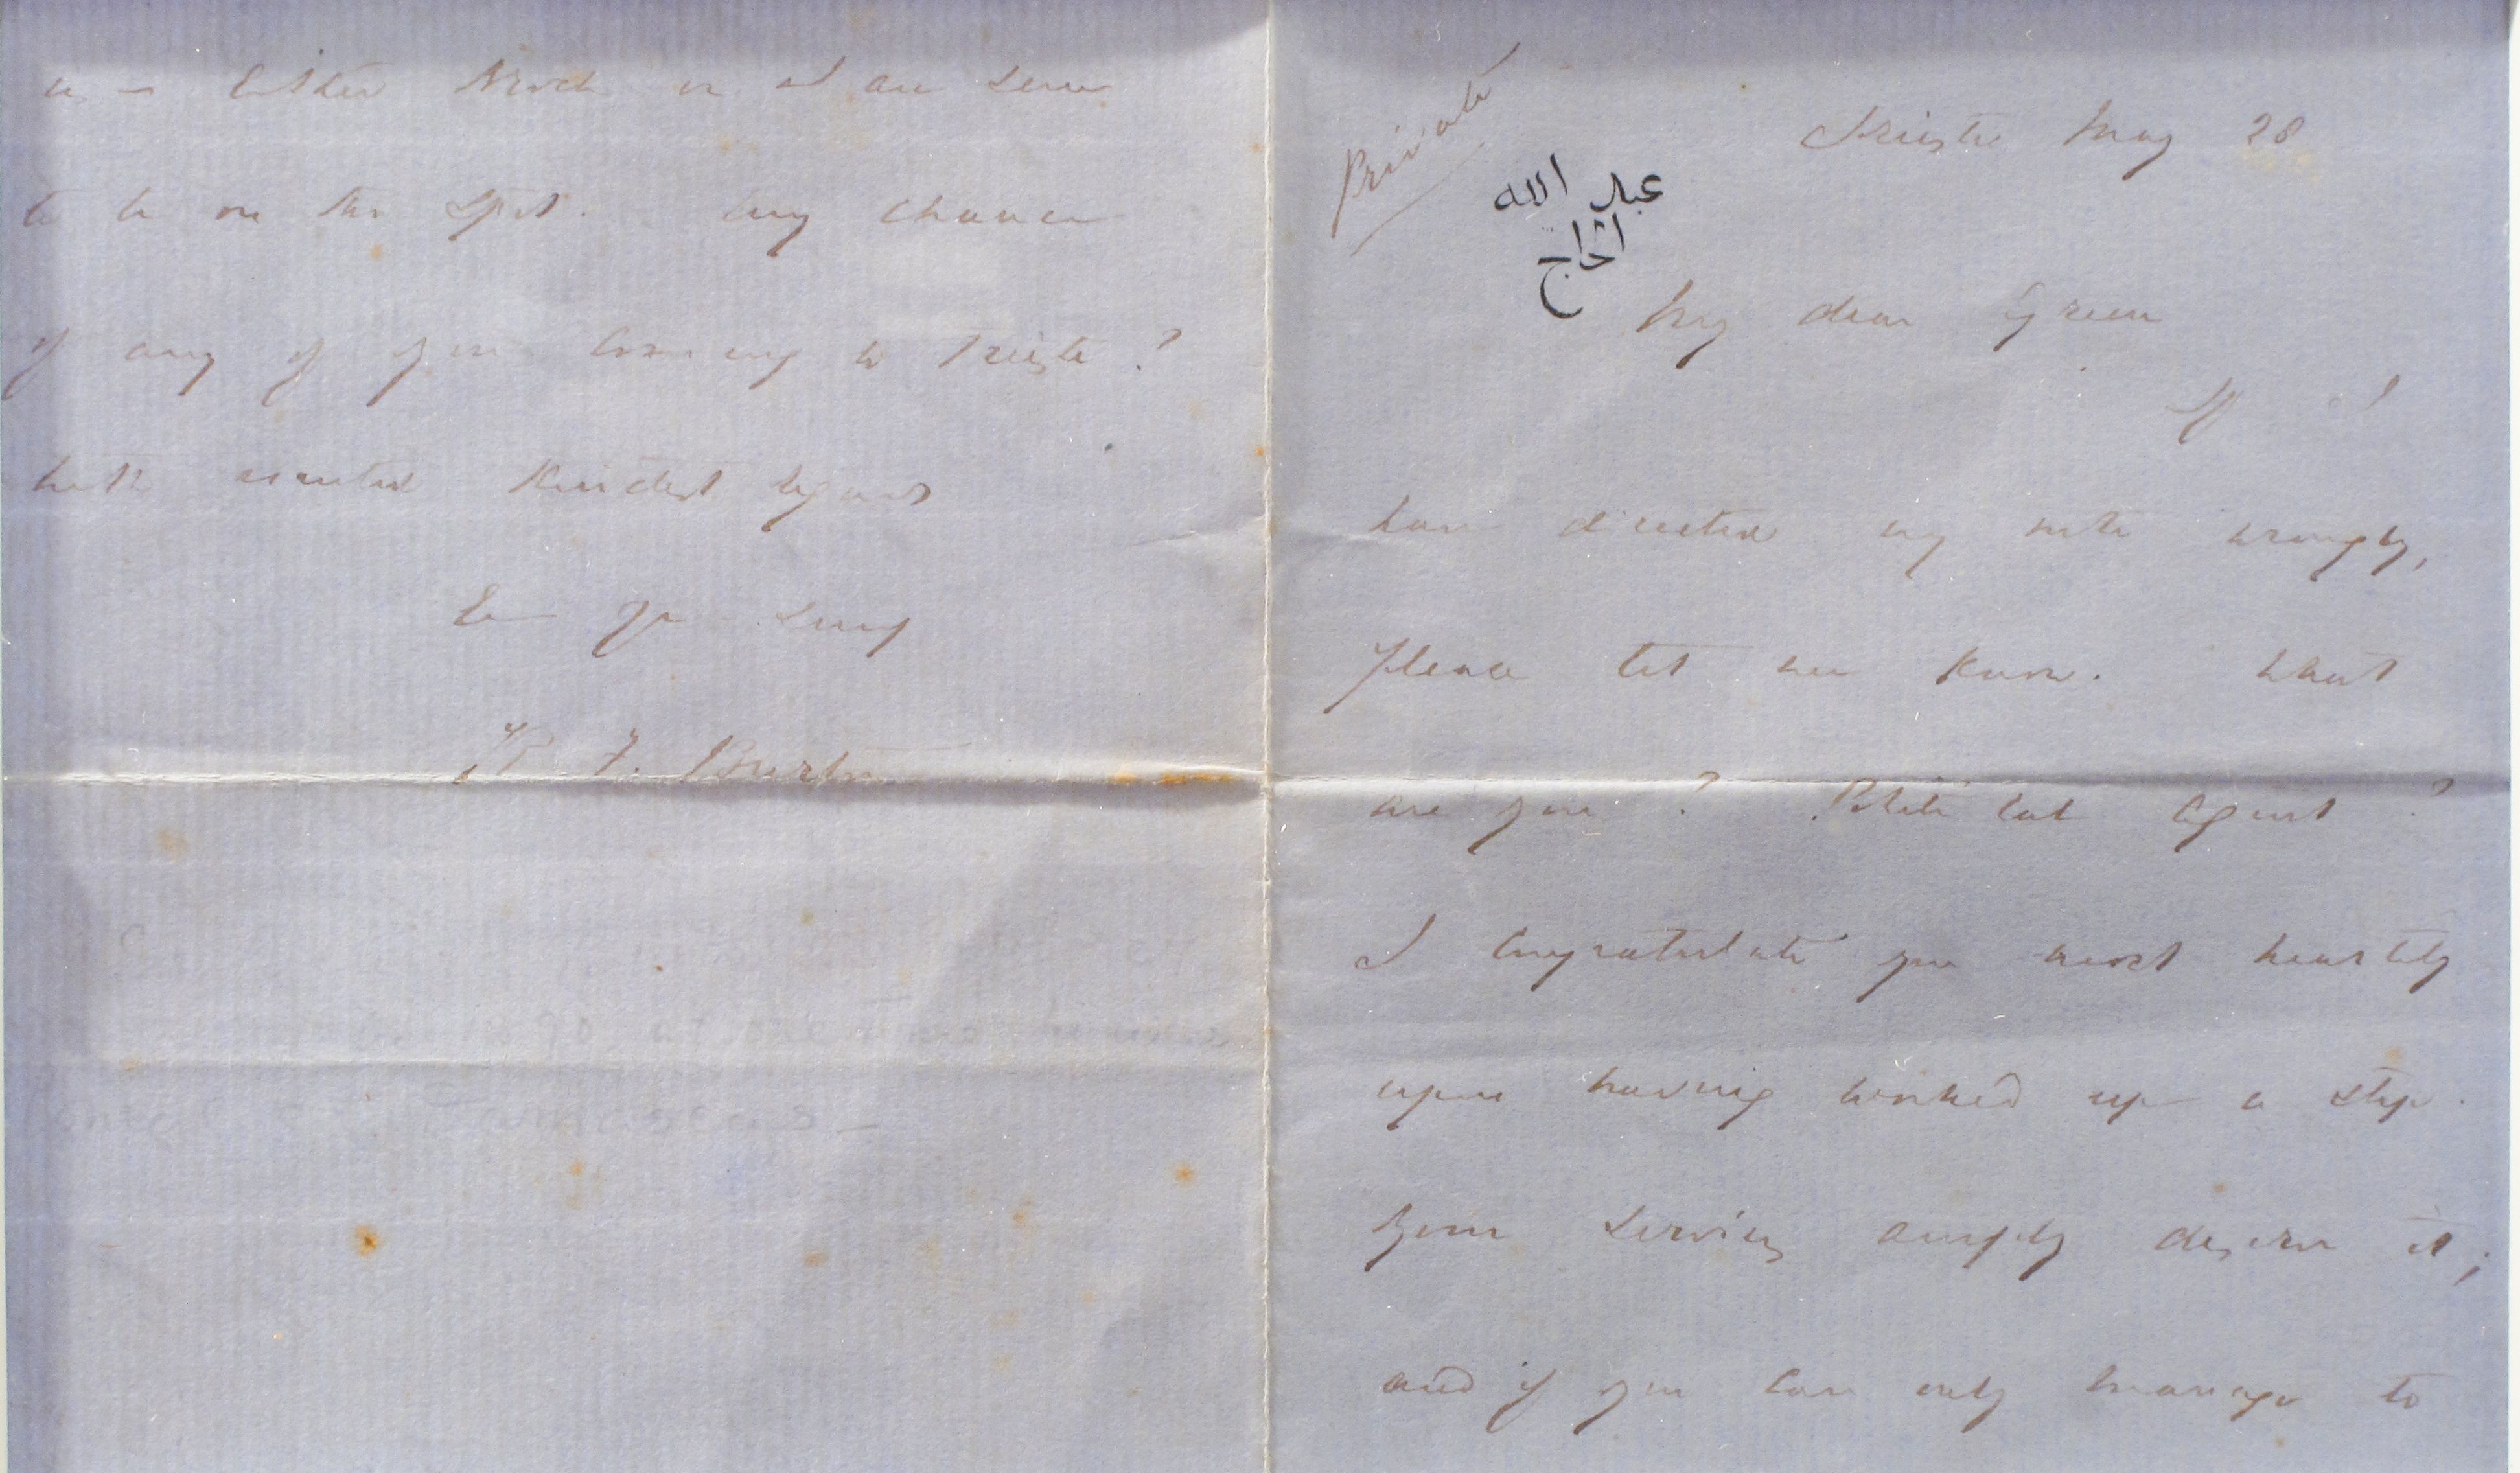 Private
Trieste May 28
عبد الله
الحاج
My dear Green
If I
have directed my note wrongly,
please let me know. What
are you? Political Agent?
I congratulate you most heartily
upon having worked up a step.
Your services amply deserve it;
and if you can only manage to
us — Either North or I are sure
to be on the spot. Any chance
of any of you coming to Trieste?
With united kindest regards
Ev yrs sincy
R F. Burton